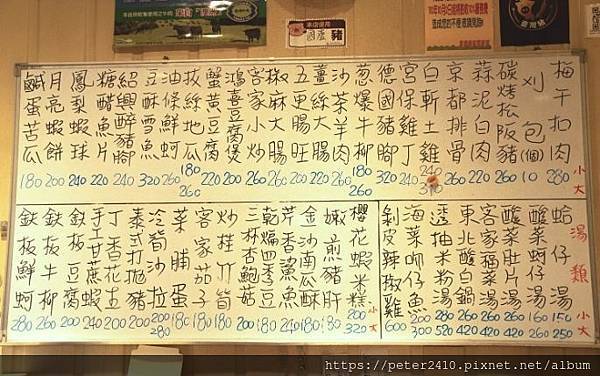 梅干扣肉 280 小大
刈包(個)
碳烤松阪豬 260
蒜泥白肉 220
京都排骨 260
白斬土雞
宮保雞丁
德國豬腳 320
蔥爆牛柳 180 260
沙茶羊肉 200
薑絲大腸 200
五更腸旺 200
椒麻大腸 260
客家小炒 200
鴻喜豆腐煲 200
蟹黃豆腐 220
拔絲地瓜 180 260
油條鮮蚵 260
豆酥雪魚 320
紹興醉豬腳 240
糖醋魚片 220
鳳梨蝦球 240
月亮蝦餅 200
鹹蛋苦瓜 180
湯類 小大
蛤仔湯 150 250
酸菜蚵仔湯 160 260
酸菜肚片湯 260 420
客家福菜湯 260 420
東北酸白鍋 260 420
透抽米粉湯 280 520
海菜吻仔魚 200 300
剝皮辣椒雞 600
櫻花蝦米糕 200小 320大
嫩煎豬肝 180
金沙南瓜酥 180
芹香鯊魚 240
乾煸四季豆 180
三杯杏鮑菇 200
炒桂竹筍 180
客家茄子 180
菜脯蛋 180
冷筍沙拉 200 280
泰式打拋豬 200
丁香花生 200
手工蔗蝦 240
鉄板豆腐 200
鉄板牛柳 260
鉄板鮮蚵 280
本店使用
國產豬
https://peter2410.pixnet.net/album